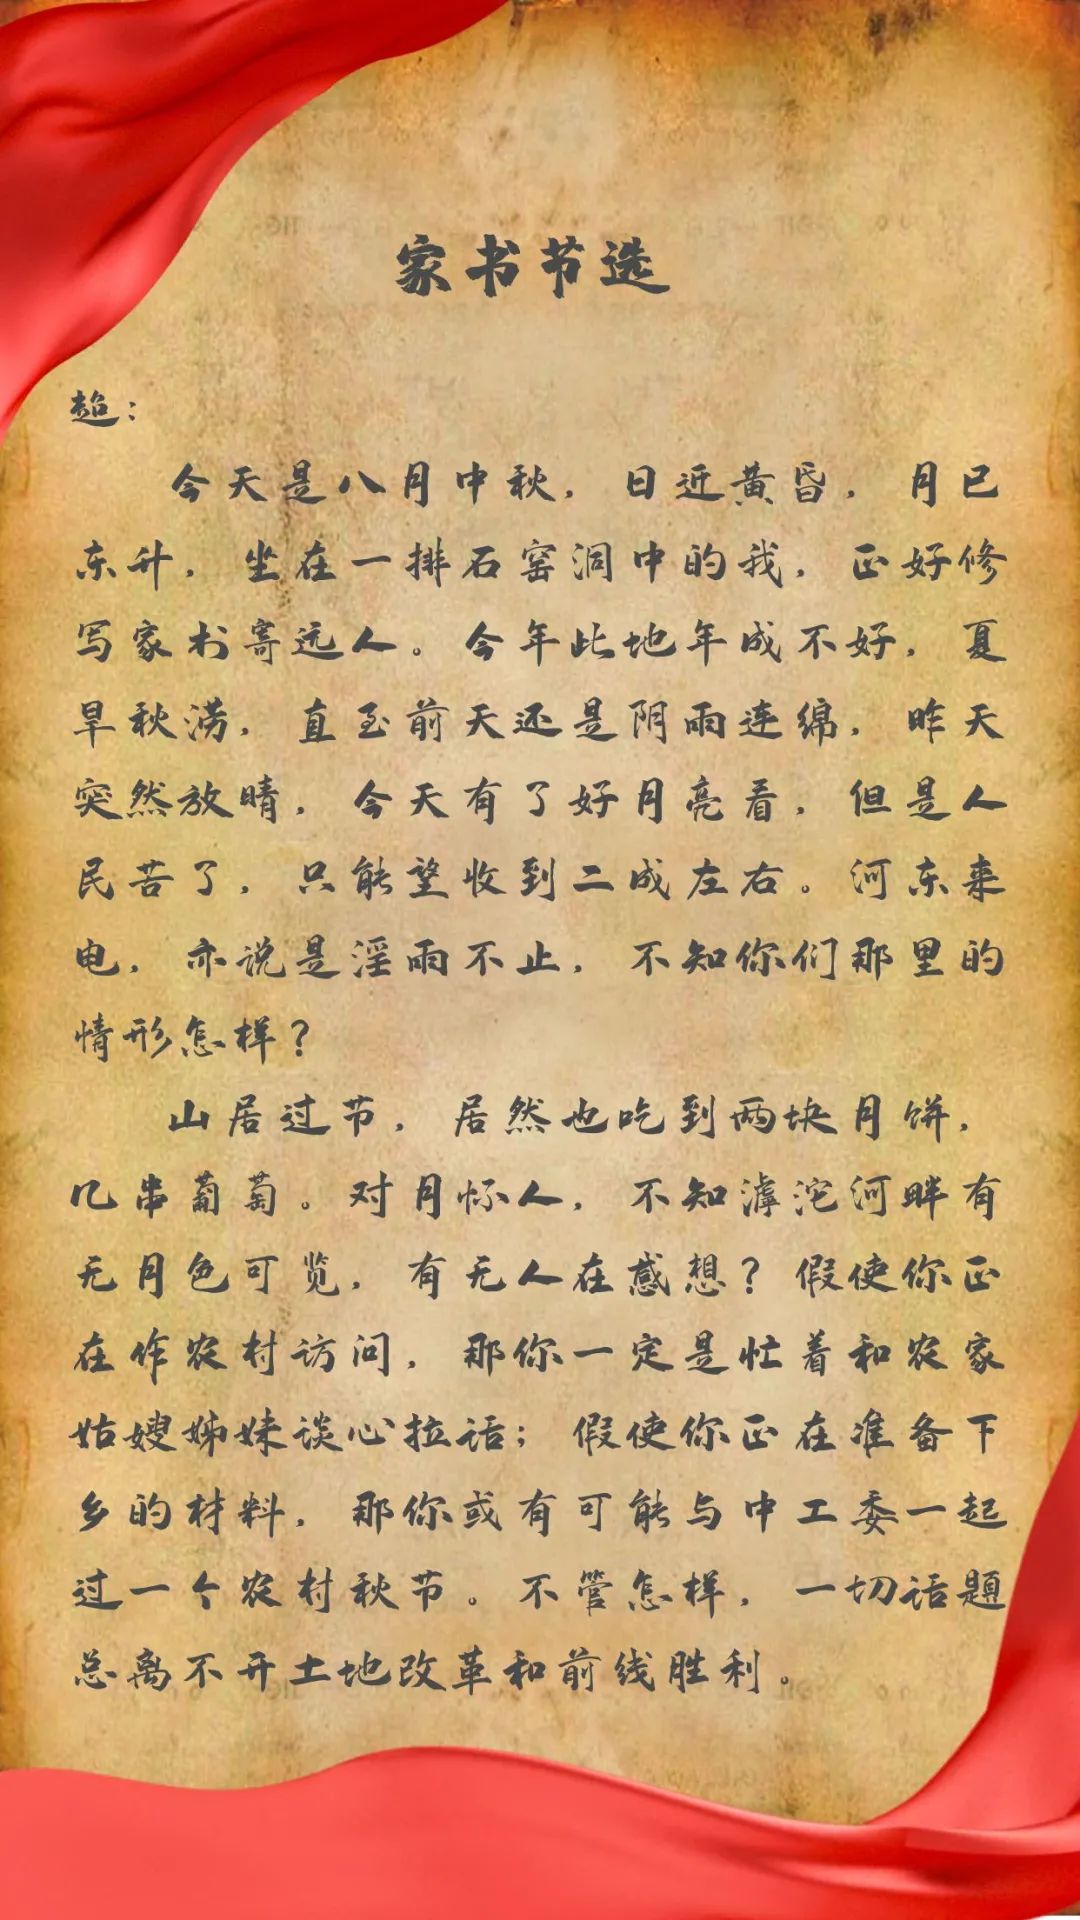 家书节选
超：
今天是八月中秋，日近黄昏，月已
东升，坐在一排石窑洞中的我，正好修
写家书寄远人。今年此地年成不好，夏
旱秋涝，直至前天还是阴雨连绵，昨天
突然放晴，今天有了好月亮看，但是人
民苦了，只能望收到二成左右。河东来
电，亦说是淫雨不止，不知你们那里的
情形怎样？
山居过节，居然也吃到两块月饼，
几串葡萄。对月怀人，不知滹沱河畔有
无月色可览，有无人在感想？假使你正
在作农村访问，那你一定是忙着和农家
姑嫂姊妹谈心拉话；假使你正在准备下
乡的材料，那你或有可能与中工委一起
过一个农村秋节。不管怎样，一切话题
总离不开土地改革和前线胜利。